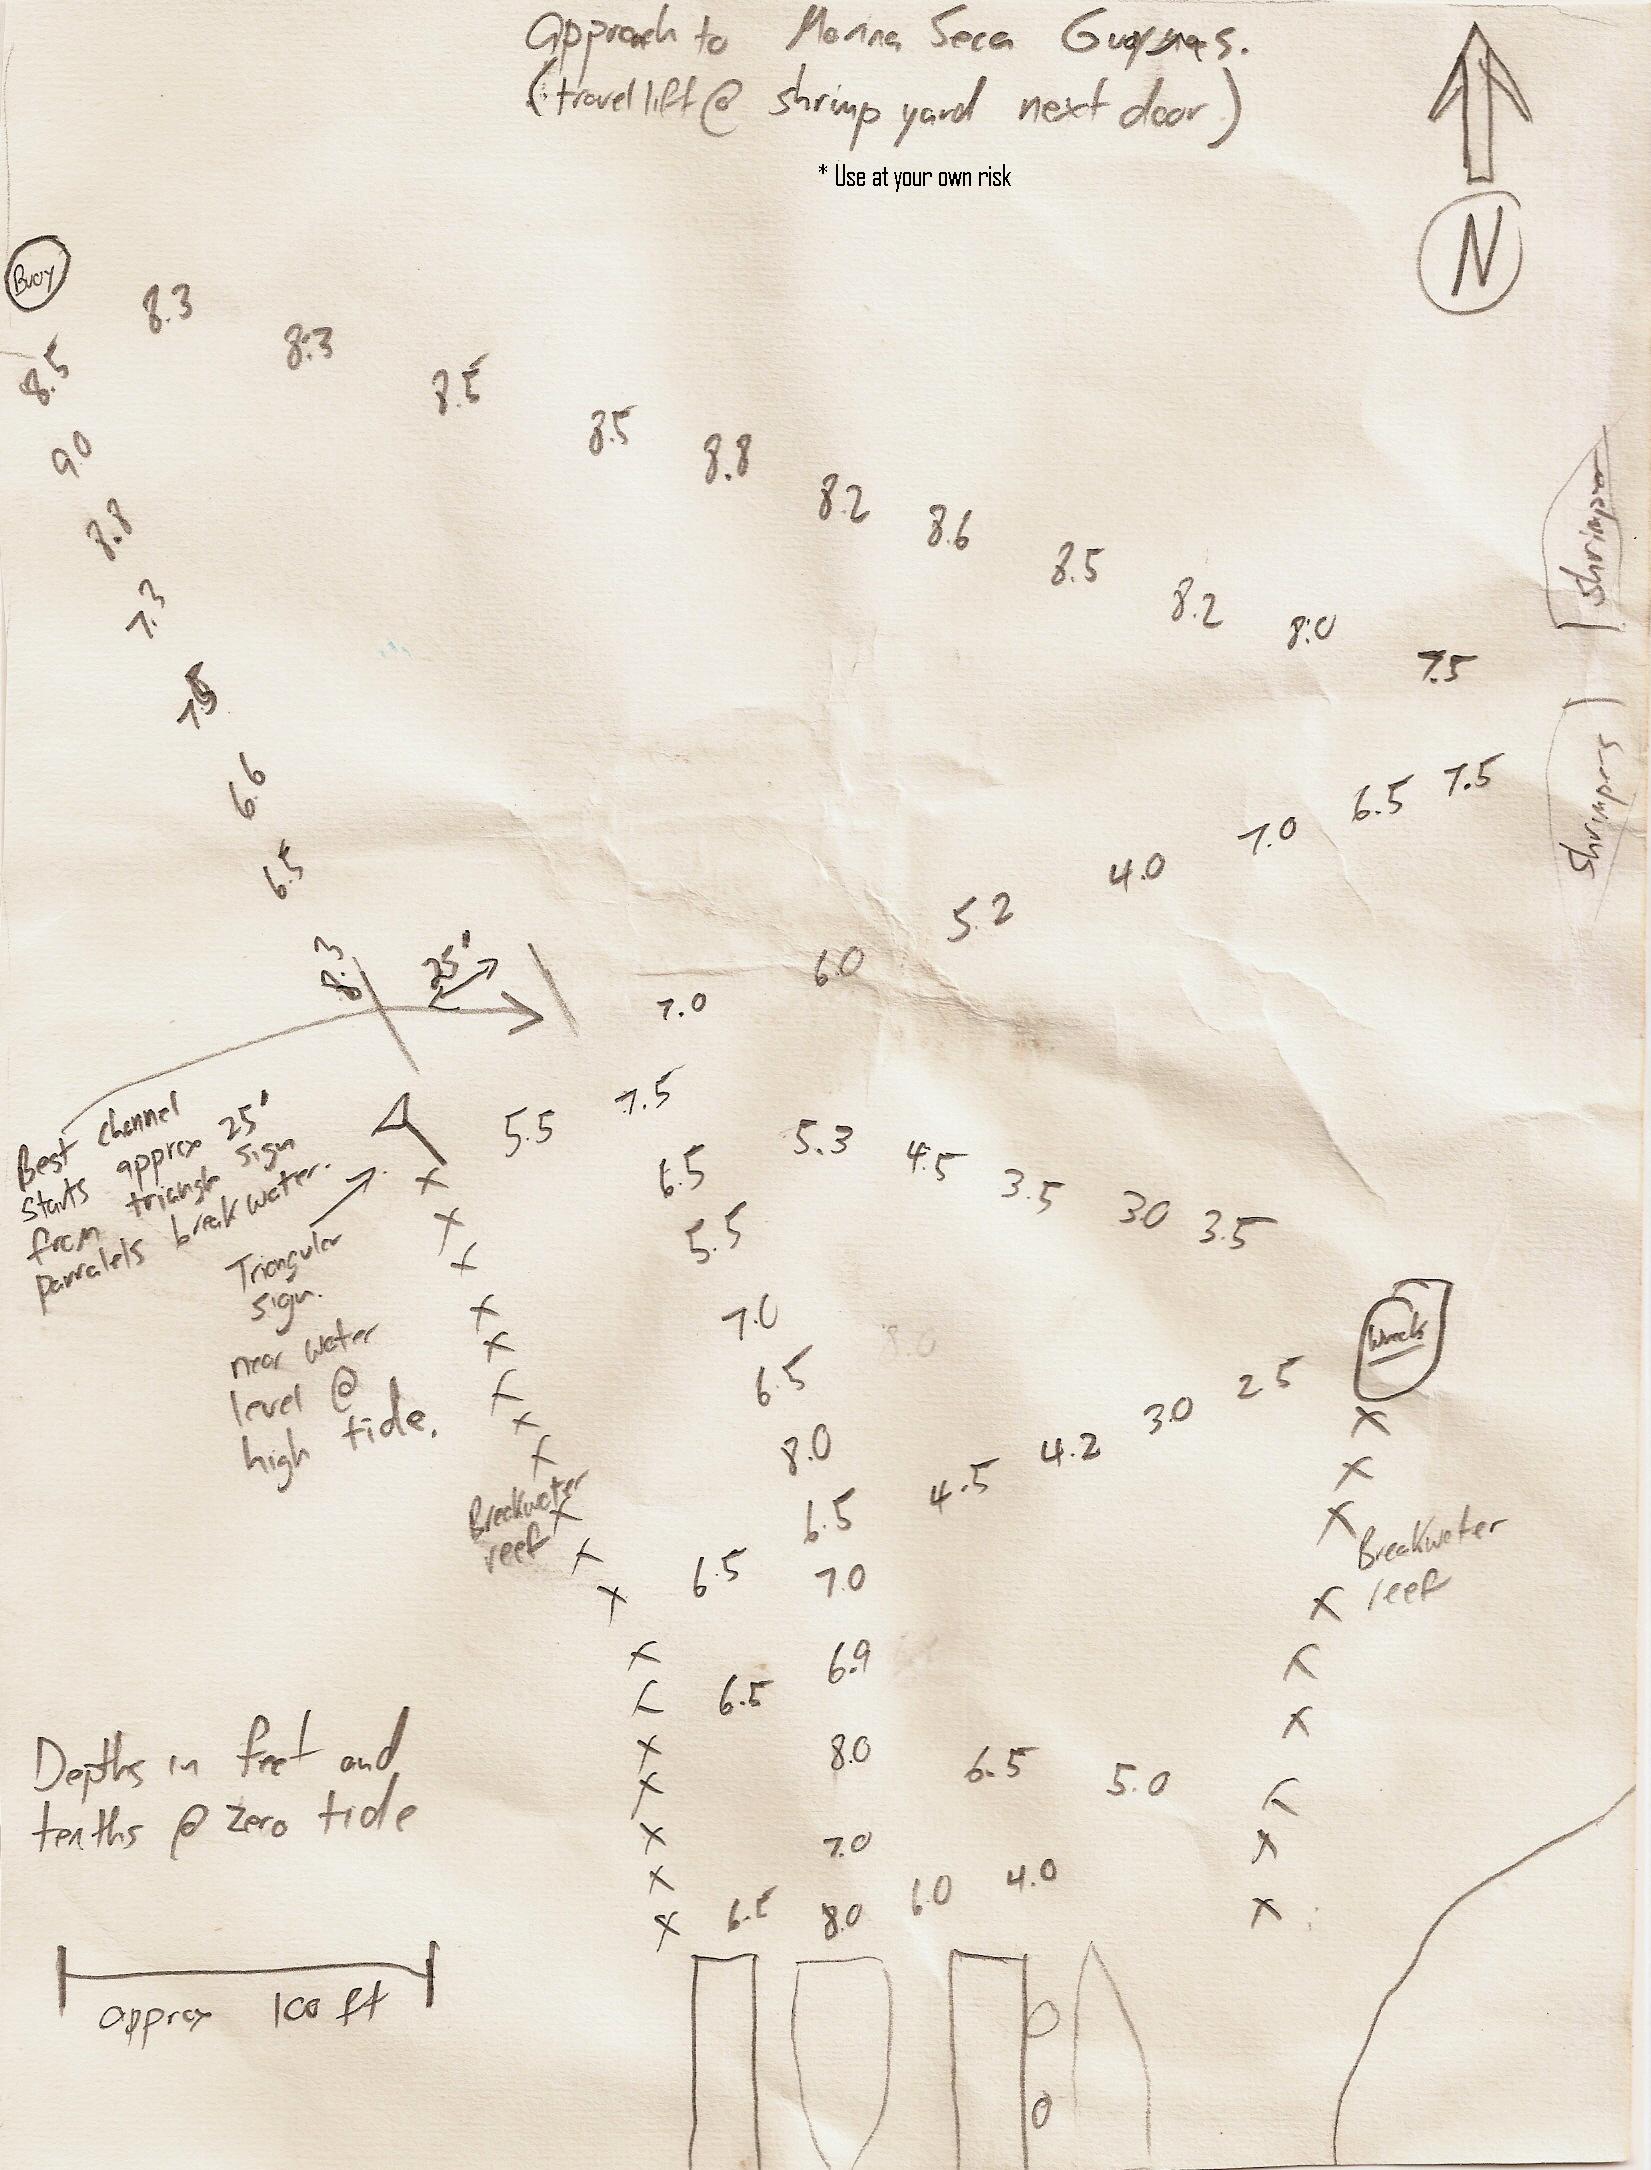 Approach to Marina Seca Guaymas.
(travel lift @ shrimp yard next door)
* Use at your own risk
N
Buoy
8.3
8.3
8.5
8.5
8.5
8.8
9.0
8.2
8.6
8.8
8.5
8.2
7.3
8.0
Shrimper
7.5
6.6
7.5
6.5
7.0
Shrimprs
6.5
4.0
5.2
8.3
25'
6.0
7.0
Best channel
starts approx 25'
from triangle sign
parralels breakwater.
5.5
7.5
5.3
4.5
3.5
3.0
3.5
6.5
5.5
Triangular
sign.
near water
level @
high tide.
7.0
8.0
Wreck
6.5
2.5
3.0
8.0
4.2
4.5
Breakwater
reef
6.5
Breakwater
reef
6.5
7.0
6.9
6.5
Depths in feet and
tenths @ zero tide
8.0
6.5
5.0
7.0
6.5
8.0
6.0
4.0
approx 100 ft